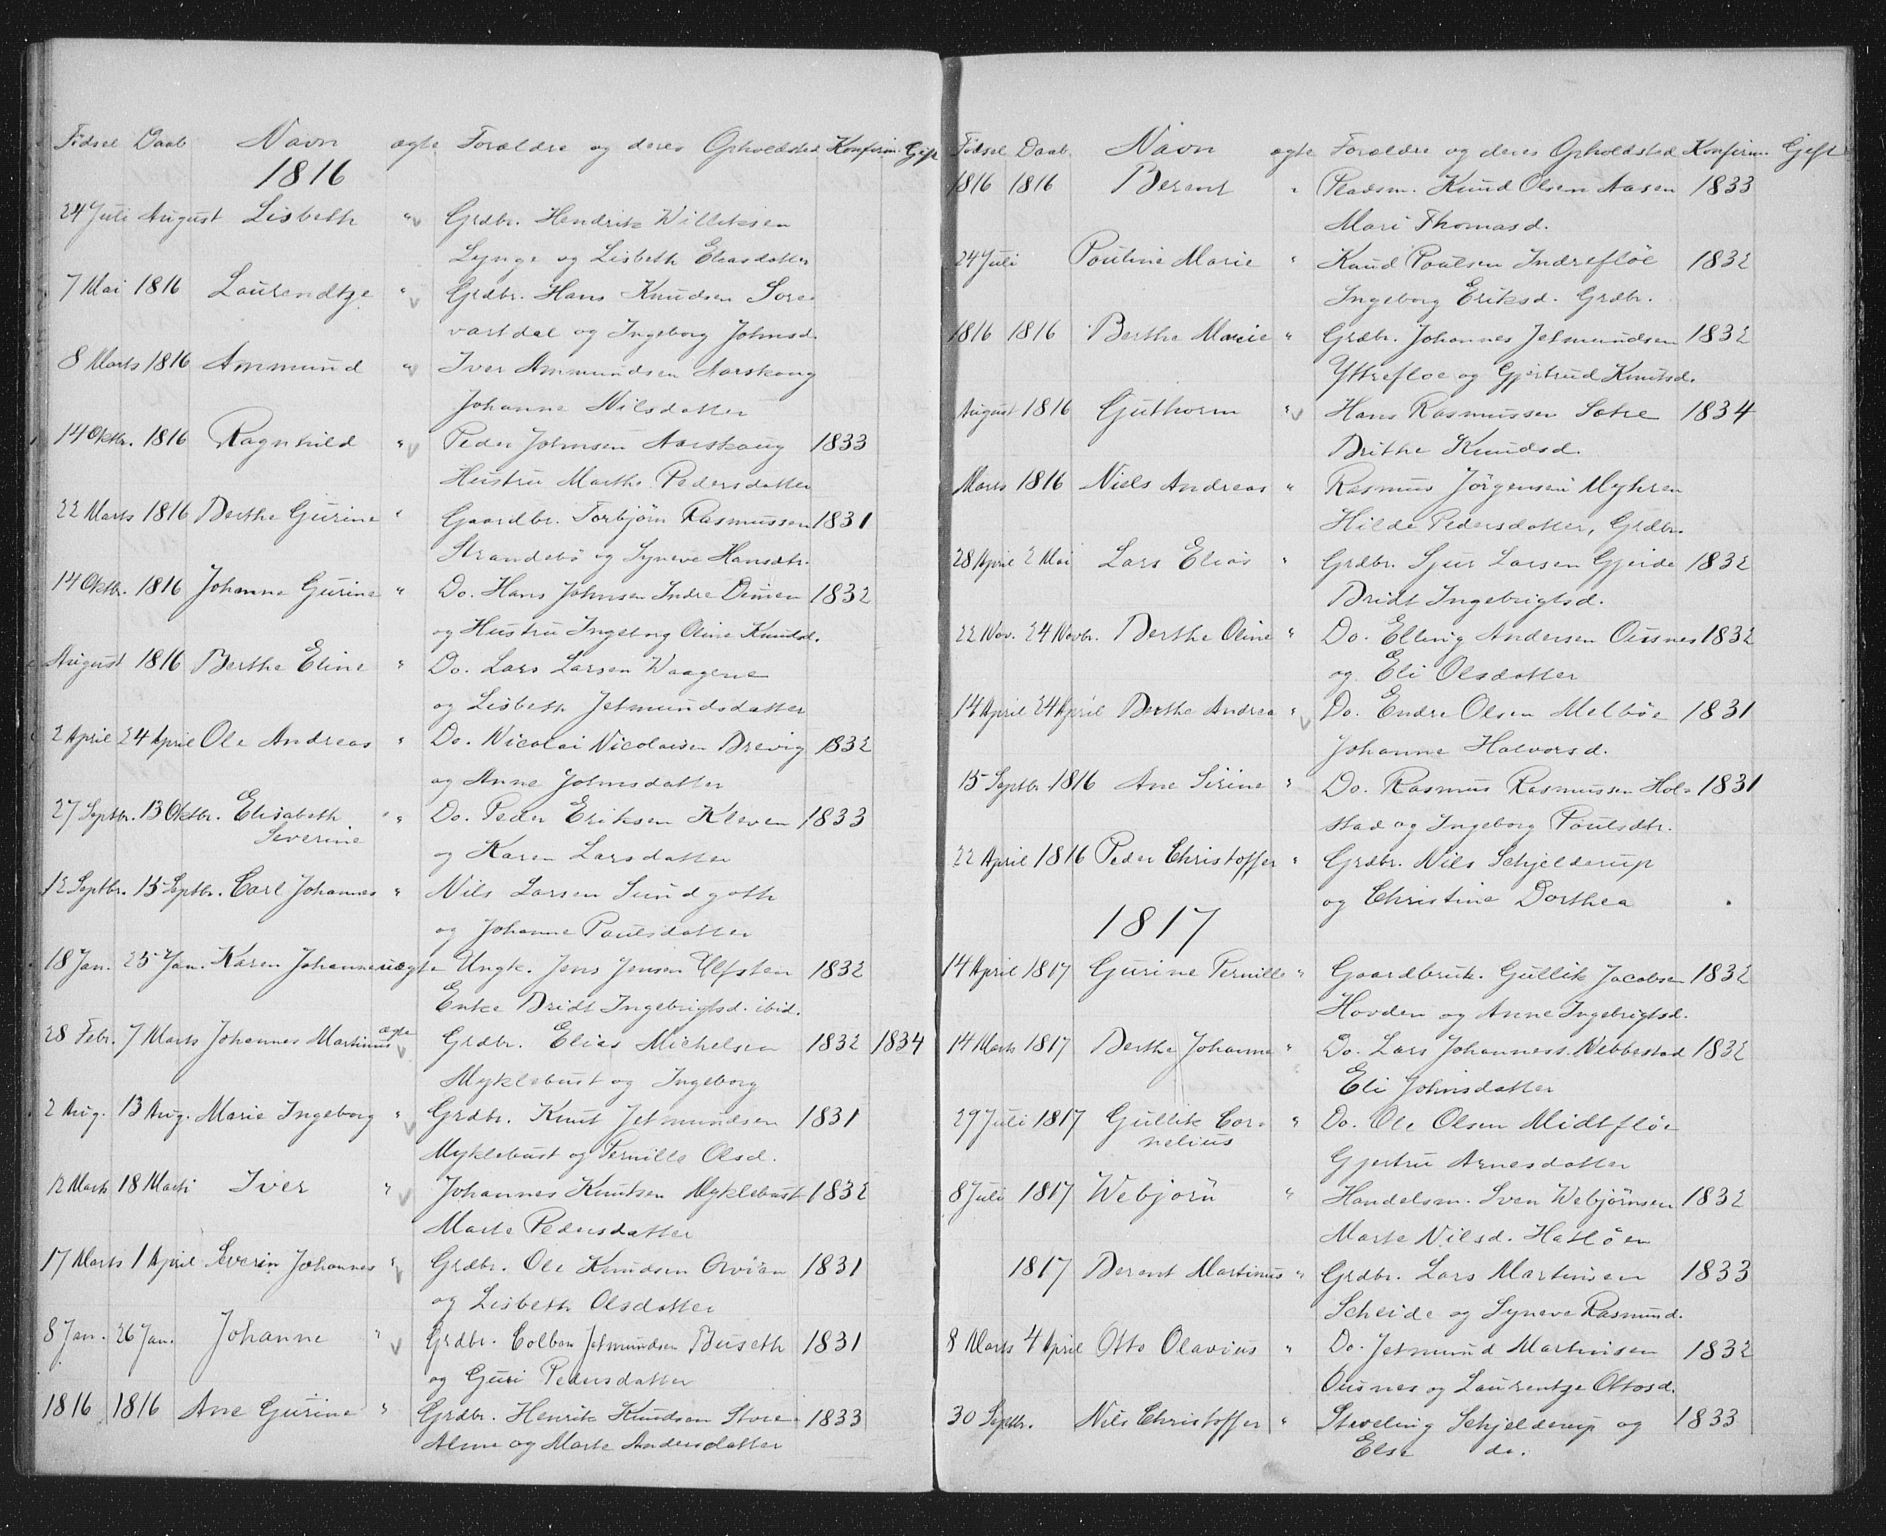 Födsel Daab Navn ægte Forældre og deres Opholdsted Konfirm. Gift
1816
24 Juli August Lisbeth " Grdbr. Hendrik Williksen
Lynge og Lisbeth Eliasdatter
7 Mai 1816 Laurendtze " Grdbr. Hans Knudsen Söre-
vartdal og Ingeborg Johnsd.
8 Marts 1816 Ammund " Iver Ammundsen Aarskoug
Johanne Nilsdatter
14 Oktbr. 1816 Ragnhild " Peder Johnsen Aarskoug 1833
Hustru Marthe Pedersdatter
22 Marts 1816 Berthe Gurine " Gaardbr. Torbjörn Rasmussen 1831
Strandebö og Syneve Hansdtr.
14 Oktbr. 1816 Johanne Gurine " Do. Hans Johnsen Indre Dimen 1832
og Hustru Ingeborg Oline Knudsd.
August 1816 Berthe Eline " Do. Lars Larsen Waagene
og Lisbeth Jetmundsdatter
2 April 24 April Ole Andreas " Do. Nicolai Nicolaisen Drevig 1832
og Anne Johnsdatter
27 Septbr. 13 Oktbr. Elisabeth " Do. Peder Eriksen Kleven 1833
Severine
og Karen Larsdatter
12 Septbr. 15 Septbr. Carl Johannes " Nils Larsen Sundgoth
og Johanne Paulsdatter
18 Jan. 25 Jan. Karen Johanne uægte Ungk. Jens Jensen Ulfsten 1832
Enke Bridt Ingebrigtsd. ibid.
28 Febr. 7 Marts Johannes Martinus ægte Grdbr. Elias Michelsen 1832 1834
Myklebust og Ingeborg
2 Aug. 13 Aug. Marie Ingeborg " Grdbr. Knut Jetmundsen 1831
Myklebust og Pernille Olsd.
12 Marts 18 Marts Iver " Johannes Knutsen Myklebust 1832
Marte Pedersdatter
17 Marts 1 April Severin Johannes " Grdbr. Ole Knudsen Röian 1831
og Lisbeth Olsdatter
8 Jan. 26 Jan. Johanne " Grdbr. Colban Jetmundsen Buseth 1831
og Guri Pedersdatter
1816 1816 Ane Gurine " Grdbr. Henrik Knudsen Store- 1833
Alme og Marte Andersdatter
Födsel Daab Navn ægte Forældre og deres Opholdsted Konfirm. Gift
1816 1816 Berent " Pladsm. Knud Olsen Aasen 1833
Mari Thomasd.
24 Juli Pouline Marie " Knud Poulsen Indreflöe 1832
Ingeborg Eriksd. Grdbr.
1816 1816 Berthe Marie " Grdbr. Johannes Jetmundsen 1832
Yttrefloe og Gjertrud Knutsd.
August 1816 Guthorm " Hans Rasmussen Sætre 1834
Brithe Knudsd.
Marts 1816 Niels Andreas " Rasmus Jörgensen Myhren
Hilde Pedersdatter, Grdbr.
28 April 2 Mai Lars Elias " Grdbr. Sjur Larsen Gjerde 1832
Bridt Ingebrigtsd.
22 Nov. 24 Novbr. Berthe Oline " Do. Elling Andersen Ousnes 1832
og Eli Olsdatter
14 April 24 April Berthe Andrea " Do. Endre Olsen Melböe 1831
Johanne Halvorsd.
15 Septbr 1816 Ane Sirine " Do. Rasmus Rasmussen Hol- 1831
stad og Ingeborg Poulsdtr.
22 April 1816 Peder Christoffer " Grdbr. Nils Schjelderup
og Christine Dorthea
1817
14 April 1817 Gurine Pernille " Gaardbruk. Gullik Jacobsen 1832
Hovden og Anne Ingebrigtsd.
14 Marts 1817 Berthe Johanne " Do. Lars Johanness. Nebbestad 1832
Eli Johnsdatter
29 Juli 1817 Gullik Cor- " Do. Ole Olsen Midtflöe
nelius
Gjertru Arnesdatter
8 Juli 1817 Webjörn " Handelsm. Sven Webjörnsen 1832
Marte Nilsd. Hatlöen
1817 Berent Martinus " Grdbr. Lars Martinsen 1833
Scheide og Syneve Rasmusd.
8 Marts 4 April Otto Olavius " Do. Jetmund Martinsen 1832
Ousnes og Laurentze Ottosd.
30 Septbr. Nils Christoffer " Staveling Schjelderup og 1833
Else do.